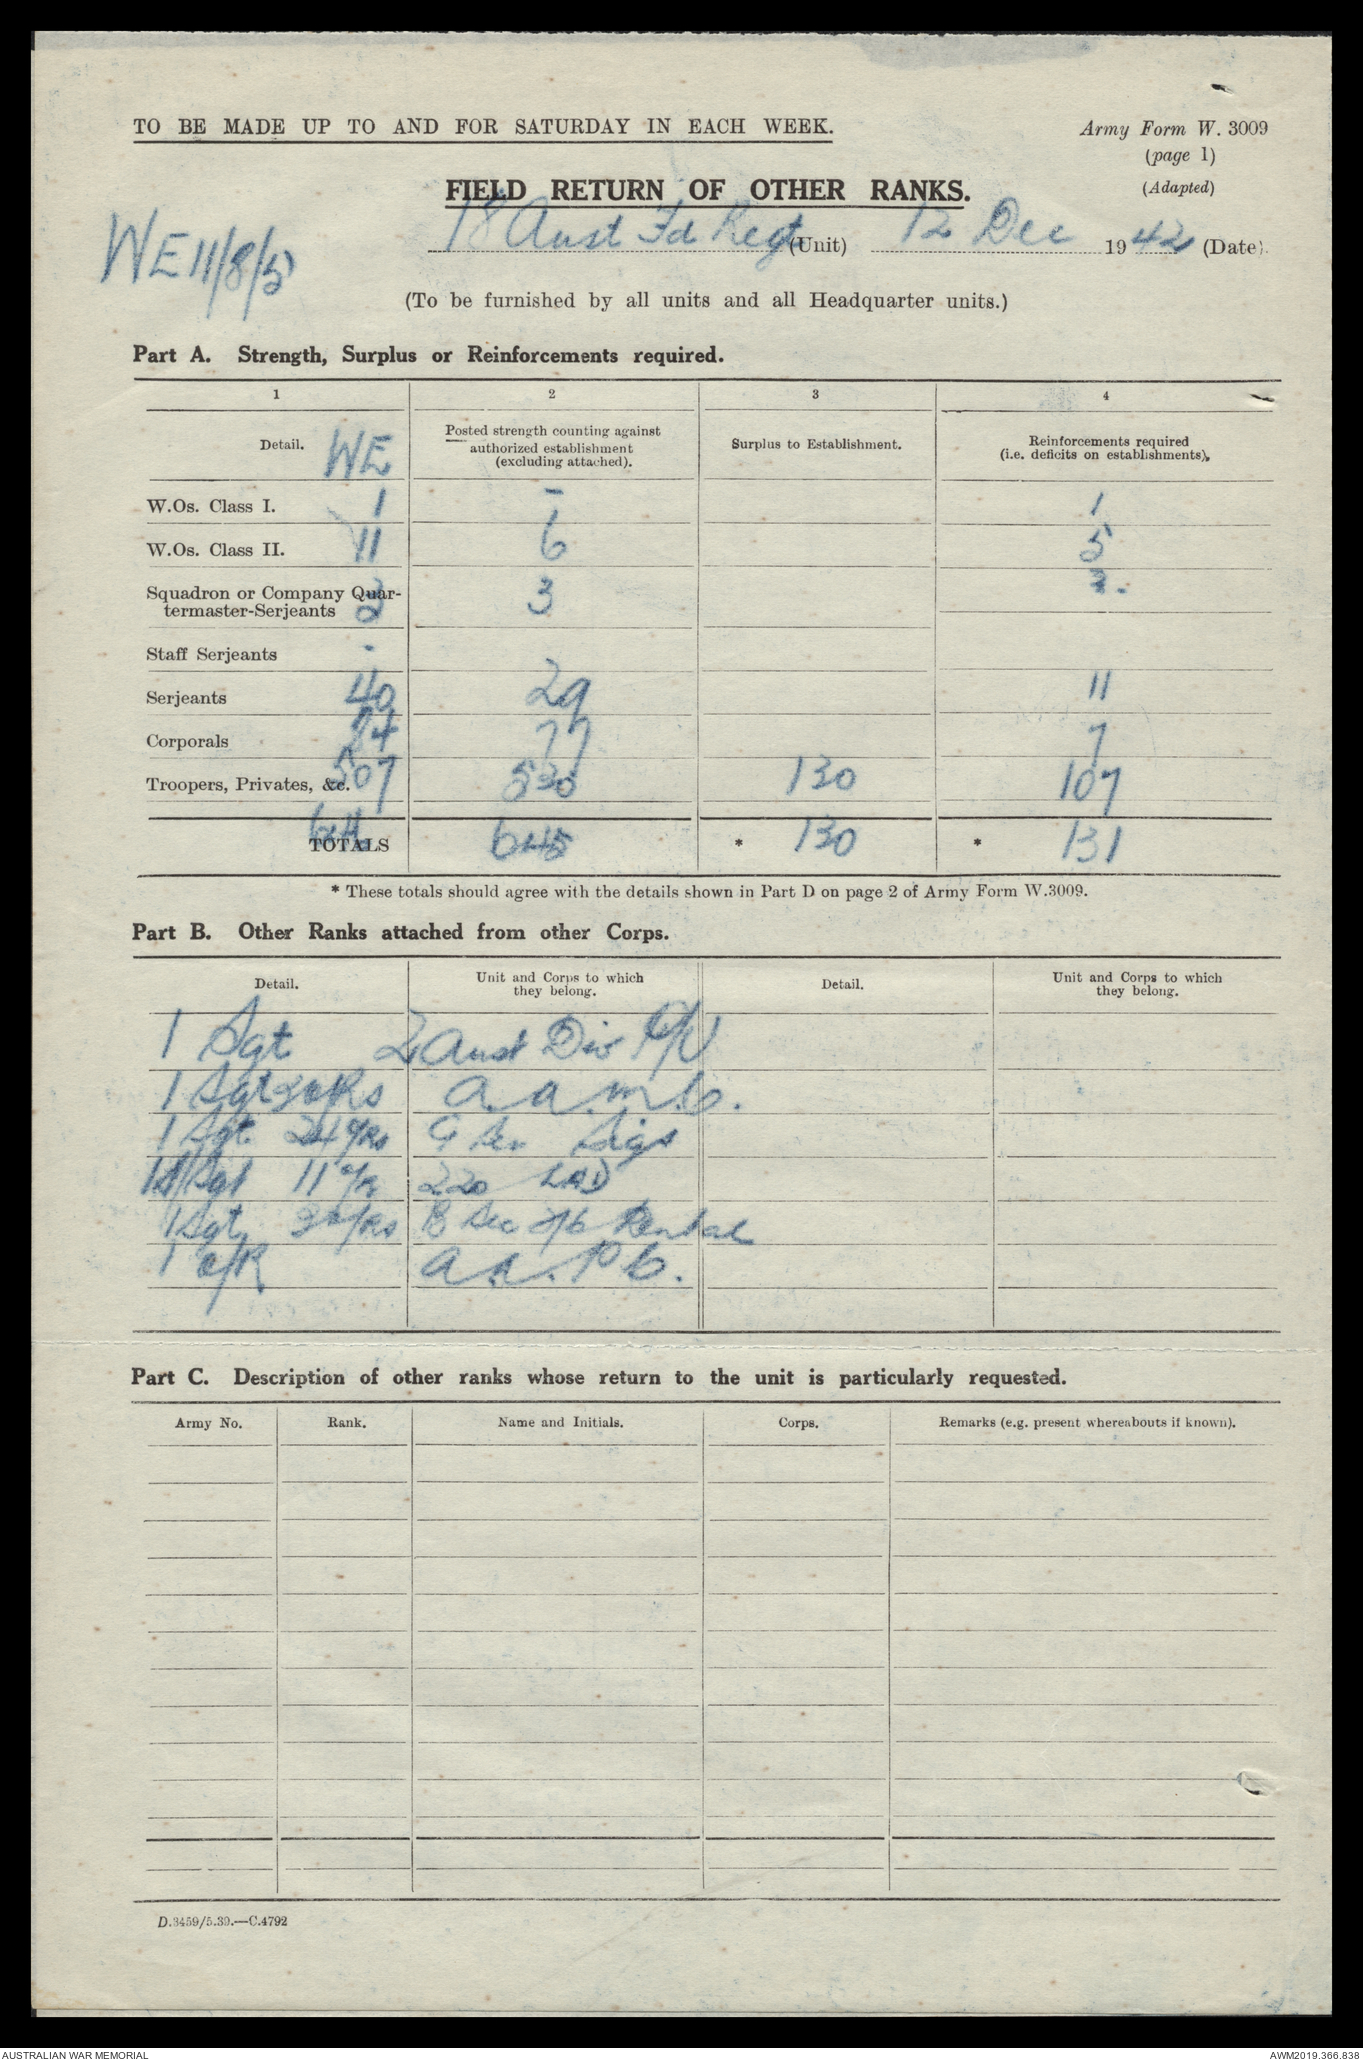 TO BE MADE UP TO AND FOR SATURDAY IN EACH WEEK.
Army Form W. 3009
(page 1)
(Adapted)
FIELD RETURN OF OTHER RANKS.
18 Aust Fd Regt (Unit) 12 Dec 1942 (Date).
WE 11/8/5
(To be furnished by all units and all Headquarter units.)
Part A. Strength, Surplus or Reinforcements required.
1 2 3 4
Detail. WE
Posted strength counting against
authorized establishment
(excluding attached).
Surplus to Establishment.
Reinforcements required
(i.e. deficits on establishments).
W.Os. Class I. 1 - 1
W.Os. Class II. 11 6 5
Squadron or Company Quar-
termaster-Serjeants 3
Staff Serjeants -
Serjeants 40 29 11
Corporals 84 77 7
Troopers, Privates, &c. 507 530 130 107
TOTALS 645 * 130 * 131
* These totals should agree with the details shown in Part D on page 2 of Army Form W.3009.
Part B. Other Ranks attached from other Corps.
Detail.
Unit and Corps to which
they belong.
Detail.
Unit and Corps to which
they belong.
1 Sgt 2 Aust Div
1 Sgt a.a.m.c.
1 Sgt 24 O/Rs Sigs
Sgt 11 220 LAD
1 Sgt O/Rs Sec Dental
1 O/R a.a.P.C.
Part C. Description of other ranks whose return to the unit is particularly requested.
Army No. Rank. Name and Initials. Corps. Remarks (e.g. present whereabouts if known).
D.3459/5.39.—C.4792
AUSTRALIAN WAR MEMORIAL
AWM2019.366.838